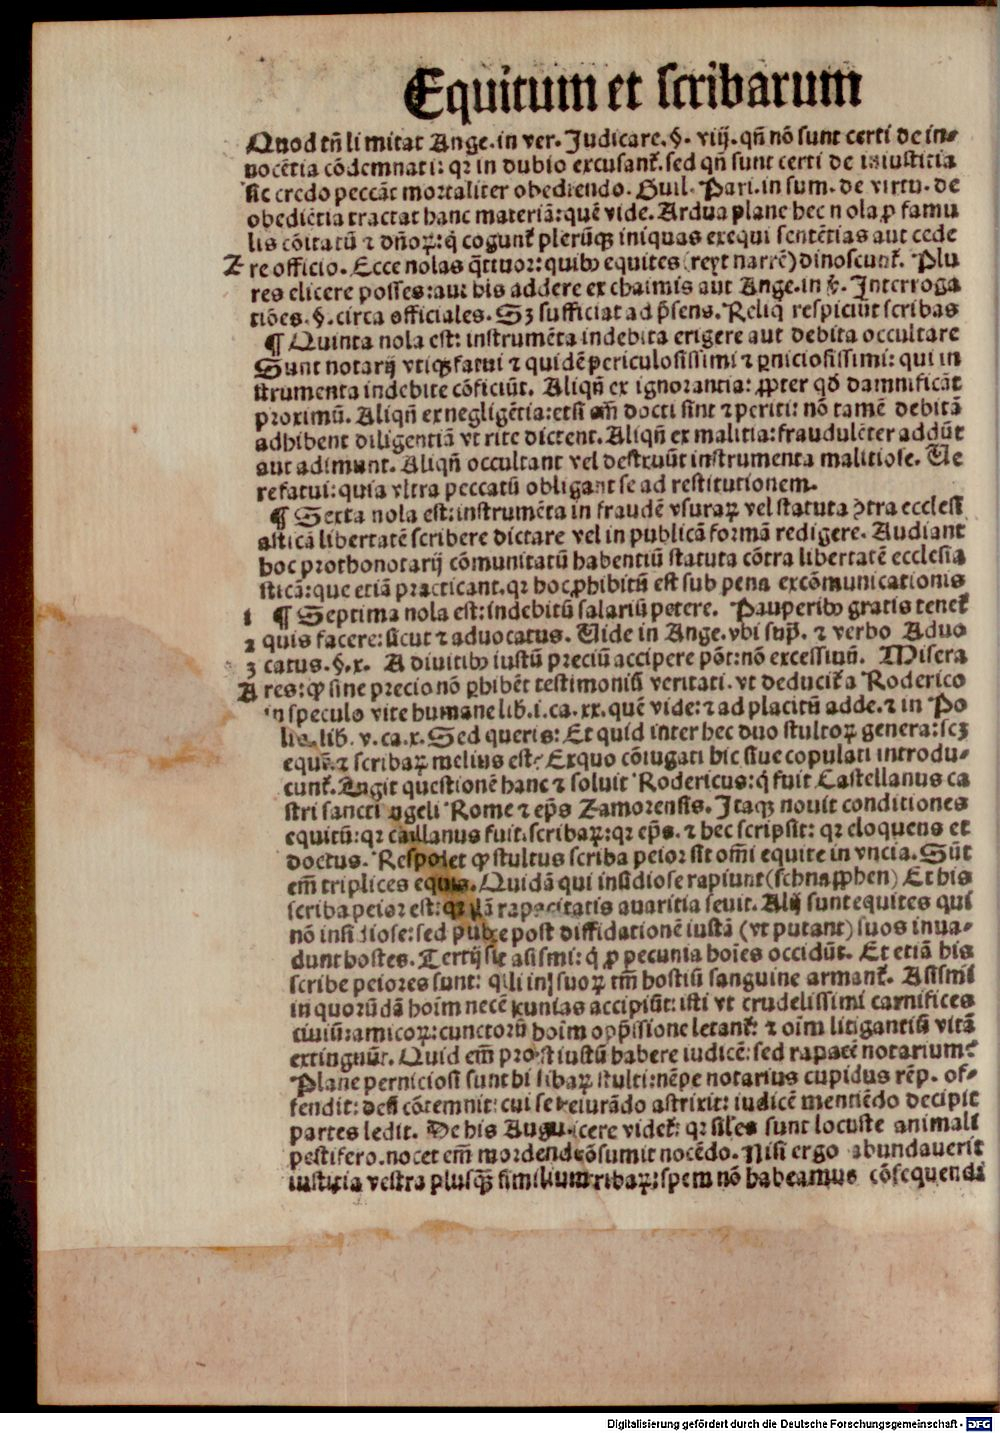 Equitum et scribarum
Quod tñ li mitat Ange. in ver. Judicare. §. viij. qñ nõ sunt certi de in-
nocẽtia cõdemnati: qr in dubio excusant᷑. sed qñ sunt certi de iniusticia
sic credo peccãt mortaliter obediendo. Guil. Pari. in sum. de virtu. de
obediẽtia tractat hanc materiã: quẽ vide. Ardua plane hec nola ꝓ famu
lis cõitatũ ⁊ dñoꝝ: q̃ cogunt᷑ plerũqꝫ iniquas exequi sentẽtias aut cede
Z re officio. Ecce nolas q̃ttuor: quibꝰ equites (reyt narrẽ) dinoscunt᷑. Plu
res elicere posses: aut his addere ex chaimis aut Ange. in ꝟ. Interroga
tiões. §. circa officiales. Sꝫ sufficiat ad p̃sens. Reliq̃ respiciũt scribas
¶ Quinta nola est: instrumẽta indebita erigere aut debita occultare
Sunt notarij vtiqꝫ fatui ⁊ quidẽ periculosissimi ⁊ ꝑniciosissimi: qui in
strumenta indebite cõficiũt. Aliqñ ex ignorantia: ꝓpter qd̃ damnificãt
proximũ. Aliqñ ex negligẽtia: etsi em̃ docti sint ⁊ periti: nõ tamẽ debitã
adhibent diligentiã vt rite dictent. Aliqñ ex malitia: fraudulẽter addũt
aut adimunt. Aliqñ occultant vel destruũt instrumenta malitiose. Ue
re fatui: quia vltra peccatũ obligant se ad restitutionem.
¶ Sexta nola est: instrumẽta in fraudẽ vsuraꝝ vel statuta ꝯtra ecclesi
asticã libertatẽ scribere dictare vel in publicã formã redigere. Audiant
hoc prothonotarij cõmunitatũ habentiũ statuta cõtra libertatẽ ecclesia
sticã: que etiã practicant. qr hoc ꝓhibitũ est sub pena excõmunicationis
1 ¶ Septima nola est: indebitũ salariũ petere. Pauperibꝰ gratis tenet᷑
2 quis facere: sicut ⁊ aduocatus. Uide in Ange. vbi sup̃. ⁊ verbo Aduo
3 catus. §. x. A diuitibꝰ iustũ preciũ accipere põt: nõ excessiuũ. Misera
A res: ꝙ sine precio nõ ꝑhibẽt testimoniũ veritati. vt deducit᷑ a Roderico
in speculo vite humane lib. i. ca. xx. quẽ vide: ⁊ ad placitũ adde. ⁊ in Po
lic. lib. v. ca. x. Sed queris: Et quid inter hec duo stultoꝝ genera: scꝫ
equẽ. ⁊ scribaꝝ melius est? Exquo cõiugati hic siue copulati introdu-
cunt᷑. Tangit questionẽ hanc ⁊ soluit Rodericus: q̃ fuit Castellanus ca
stri sancti ngeli Rome ⁊ ep̃s Zamorensis. Itaqꝫ nouit conditiones
equitũ: qr ca llanus fuit. scribaꝝ: qr ep̃s. ⁊ hec scripsit: qr eloquens et
doctus. Respo et ꝙ stultus scriba peior sit om̃i equite in vncia. Sũt
em̃ triplices equ s. Quidã qui insidiose rapiunt (schnapphen) Et his
scriba peior est: qr rapacitatis auaritia seuit. Alij sunt equites qui
nõ insidiose: sed pub e post diffidationẽ iustã (vt putant) suos inua-
dunt hostes. Tertij st asismi: q̃ ꝓ pecunia hoĩes occidũt. Et etiã his
scribe peiores sunt: q li in suoꝝ tm̃ hostiũ sanguine armant᷑. Asismi
in quorũdã hoĩm necẽ cunias accipiũt: isti vt crudelissimi carnifices
ciuiũ: amicoꝝ: cunctorũ hoĩm opp̃ssione letant᷑: ⁊ oĩm litigantiũ vitã
extingunt. Quid em̃ pro st iustũ habere iudicẽ: sed rapacẽ notarium?
Plane perniciosi sunt hi ribaꝝ stulti: nẽpe notarius cupidus rẽp. of-
fendit: deũ cõtemnit: cui se eiurãdo astrixit: iudicẽ mentiẽdo decipit
partes ledit. De his Augu. icere videt᷑: qr siles sunt locuste animali
pestifero. nocet em̃ mordend cõsumit nocẽdo. Nisi ergo abundauerit
iusticia vestra plusqꝫ similium ribaꝝ: spem nõ habeamus cõsequendi
Digitalisierung gefördert durch die Deutsche Forschungsgemeinschaft - DFG